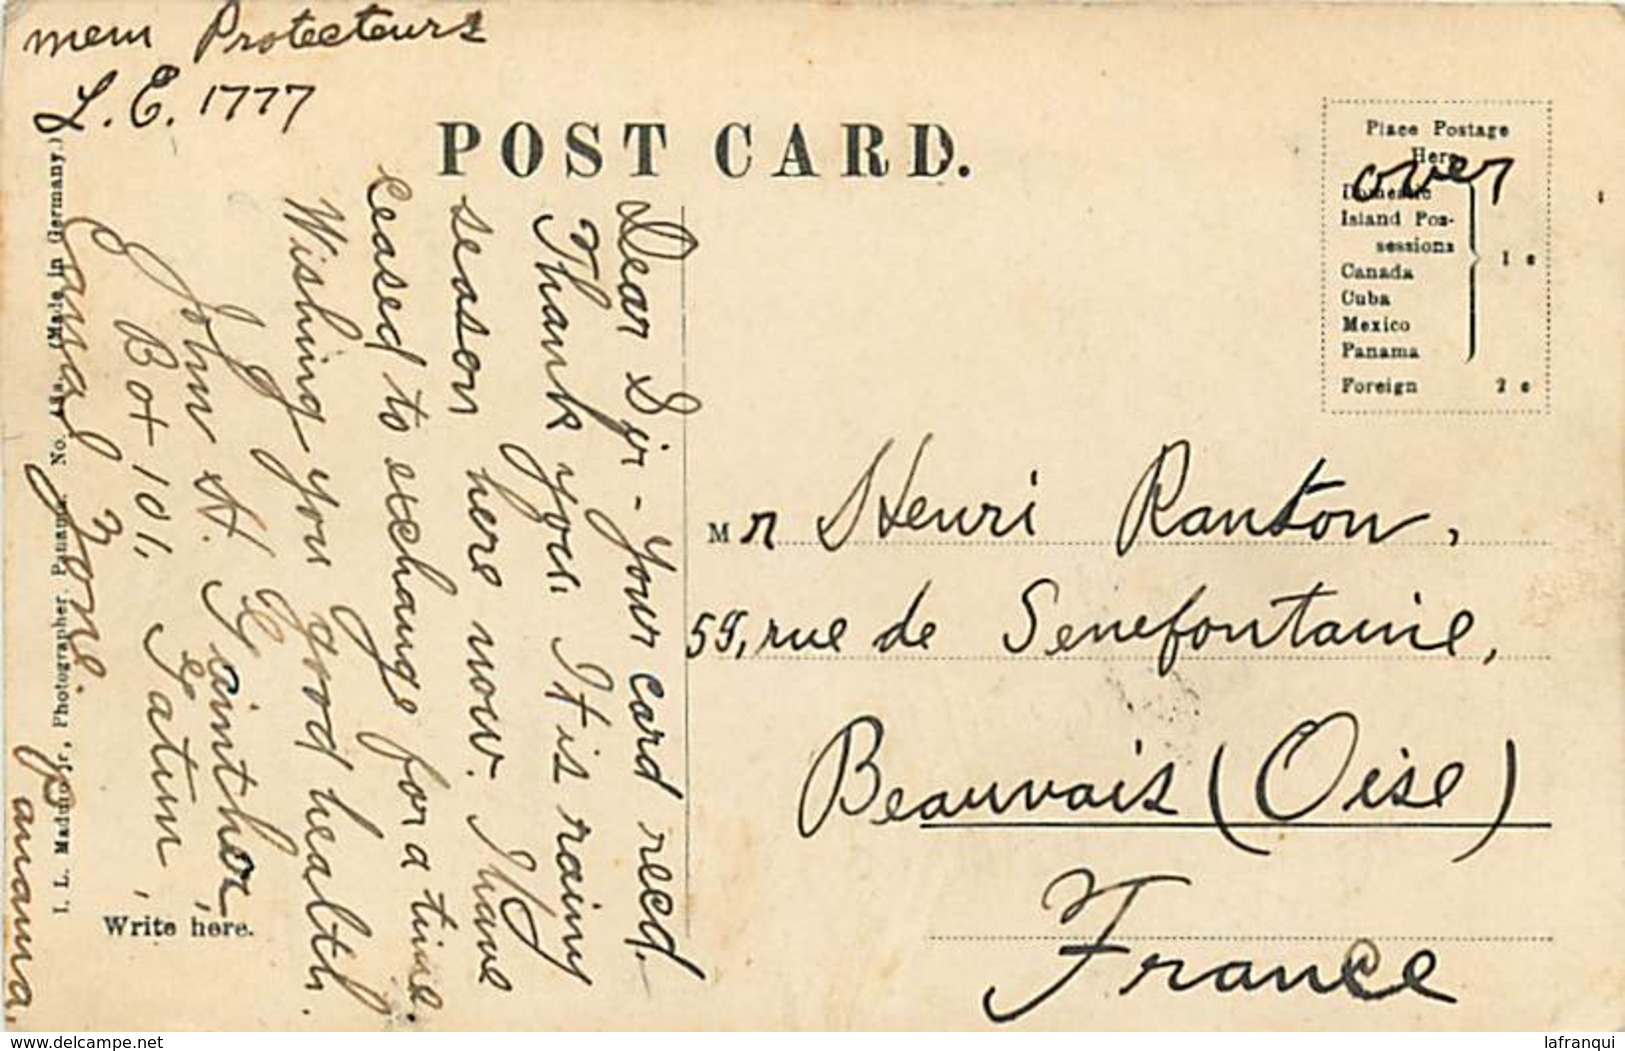 mem Protecteurs
L. E. 1777
POST CARD.
Place Postage
Here
over
Domestic
Island Pos-
sessions
Canada
Cuba
Mexico
Panama
1 c
Foreign 2 c
Dear Sir - Your card recd.
Thank you. It is rainy
season here now. I have
ceased to exchange for a time.
Wishing you good health
John H.
Box 101, Gatun,
Canal Zone.
Panama,
Mr Henri Ranson,
59, rue de Senefontaine,
Beauvais (Oise)
France
I. L. Maduro Jr., Photographer, Panama. No. (Made in Germany.)
Write here.
www.delcampe.net
lafranqui